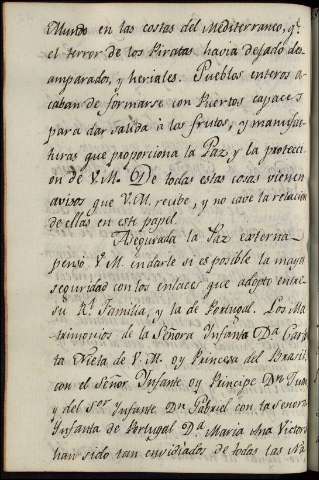 Mundo en las costas del Mediterraneo, q.e
el terror de los Piratas havia dejado des
amparados, y heriales. Pueblos enteros a-
caban de formarse con Puertos capaces
para dar salida à los frutos, y manufac
turas que proporciona la Paz, y la protecci
on de V. M. De todas estas cosas vienen
avisos que V. M. recibe, y no cave la relacion
de ellas en este papel.
Asegurada la Paz externa
pensò V. M. en darle si es posible la mayor
seguridad con los enlaces que adoptò entre
su Rl. Familia, y la de Portugal. Los Ma
trimonios de la Señora Infanta Da. Carlo
ta Nieta de V. M. oy Princesa del Brasil,
con el Señor Infante oy Principe Dn. Juan
y del Sor. Infante Dn. Gabriel con la Señora
Infanta de Portugal Da. Maria Ana Victoria
han sido tan envidiados de todas las Na